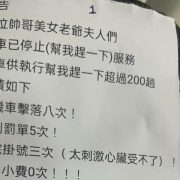 告 1
位帥哥美女老爺夫人們
車已停止(幫我趕一下)服務
車供執行幫我趕一下超過200趟
績如下
機車擊落八次！
刂罰單5次！
院掛號三次（太刺激心臟受不了）！
小費0次！！！